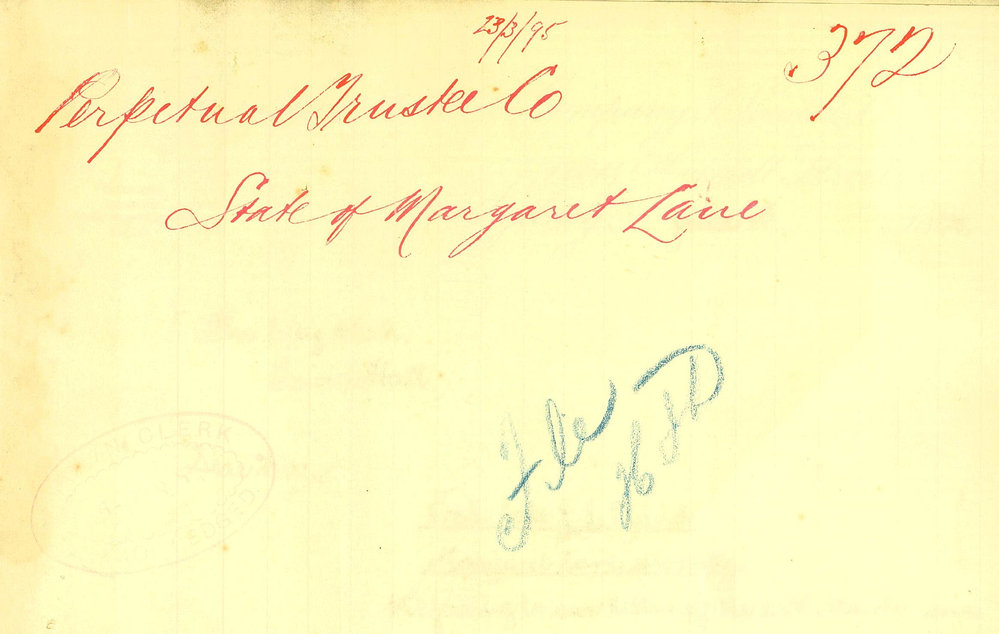 23/3/95
372
Perpetual Trustee Co
State of Margaret Lane
File
CLERK